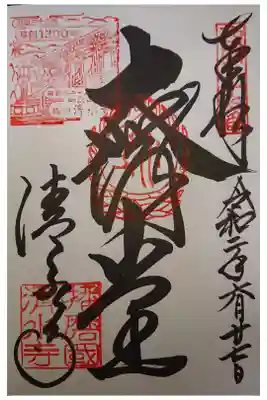 奉拝 令和二年六月廿七日
大講堂
清水寺
播磨國
清水寺